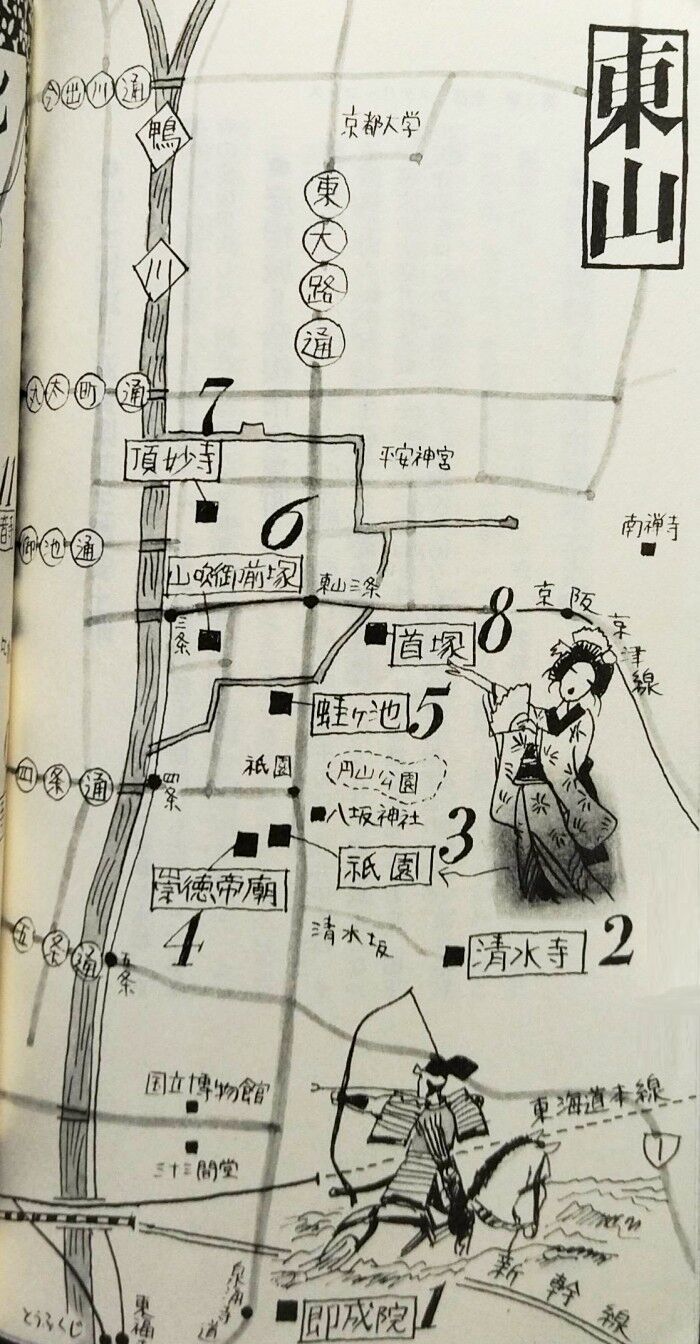 東山
今出川通
鴨川
京都大学
東大路通
丸太町通
7
頂妙寺
平安神宮
御池通
6
南禅寺
山吹御前塚
東山三条
京阪京津線
三条
首塚
8
蛙ヶ池
5
祇園
円山公園
四条通
四条
八坂神社
3
祇園
崇徳帝廟
4
清水坂
清水寺
2
五条通
五条
国立博物館
東海道本線
三十三間堂
1
新幹線
とうふくじ
東福
泉涌寺道
即成院
1